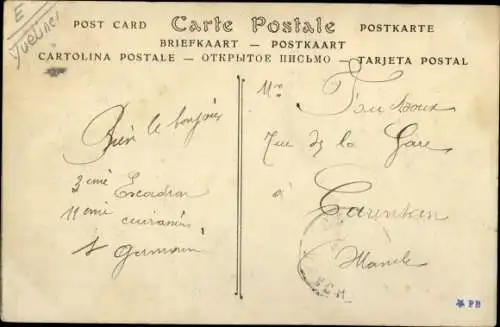 E
Yvelines
POST CARD Carte Postale POSTKARTE
BRIEFKAART — POSTKAART
CARTOLINA POSTALE — ОТКРЫТОЕ ПИСЬМО — TARJETA POSTAL
Bien le bonjour
3eme Escadron
11eme cuirassiers
St Germain
Mme
Rue de la Gare
à
Carentan
Manche
PB